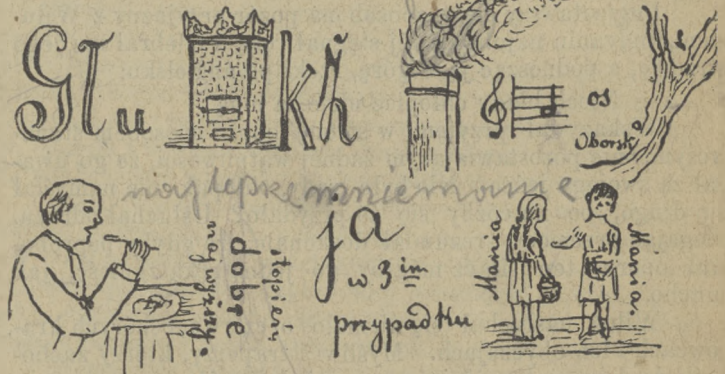 Głu kł
os
Oborsk
najlepsze mniemanie
stopień
dobrę
najwyższy.
ja
w 3im
przypadku
Mania
Mania.